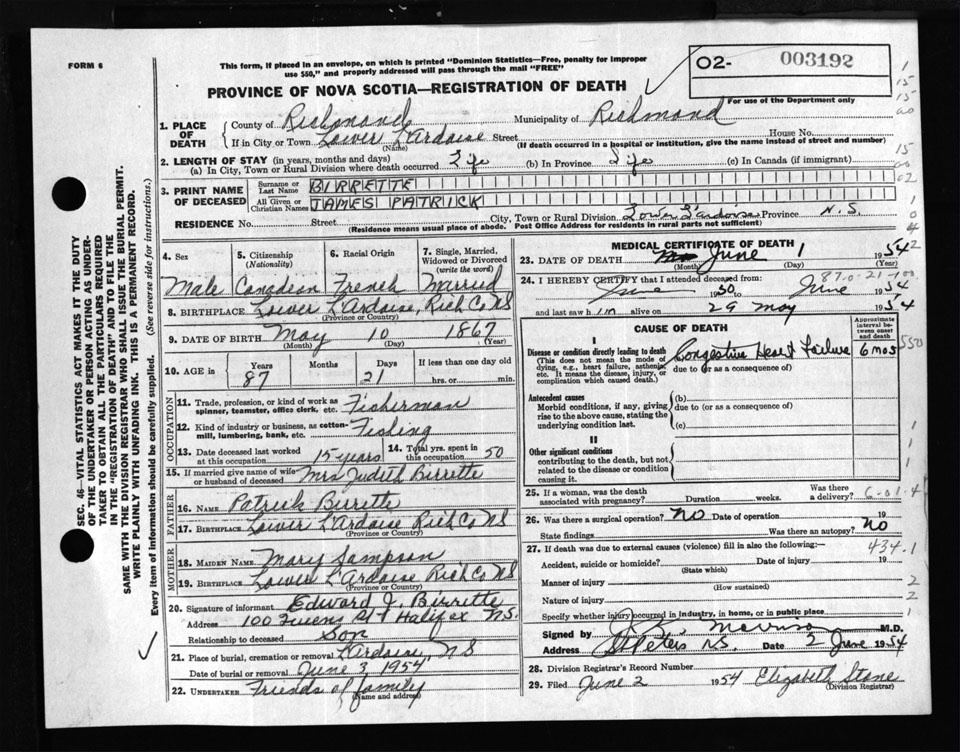 FORM 6
This form, if placed in an envelope, on which is printed "Dominion Statistics—Free, penalty for improper
use $50," and properly addressed will pass through the mail "FREE"
02- 003192
For use of the Department only
PROVINCE OF NOVA SCOTIA—REGISTRATION OF DEATH
1. PLACE OF DEATH
County of Richmond Municipality of Richmond
If in City or Town Lower L'Ardoise Street House No.
(Name) (If death occurred in a hospital or institution, give the name instead of street and number)
2. LENGTH OF STAY (in years, months and days)
(a) In City, Town or Rural Division where death occurred Life (b) In Province Life (c) In Canada (if immigrant)
3. PRINT NAME OF DECEASED
Surname or Last Name BIRRETTE
All Given or Christian Names JAMES PATRICK
RESIDENCE No. Street City, Town or Rural Division Lower L'ardoise Province N.S.
(Residence means usual place of abode. Post Office Address for residents in rural parts not sufficient)
4. Sex 5. Citizenship (Nationality) 6. Racial Origin 7. Single, Married, Widowed or Divorced (write the word)
Male Canadian French Married
8. BIRTHPLACE Lower L'Ardoise, Rich Co NS
(Province or Country)
9. DATE OF BIRTH May 10 1867
(Month) (Day) (Year)
10. AGE in Years Months Days If less than one day old
87 21 hrs. or min.
OCCUPATION
11. Trade, profession, or kind of work as spinner, teamster, office clerk, etc. Fisherman
12. Kind of industry or business, as cotton-mill, lumbering, bank, etc. Fishing
13. Date deceased last worked at this occupation 15 years 14. Total yrs. spent in this occupation 50
15. If married give name of wife or husband of deceased Mrs Judith Birrette
FATHER
16. NAME Patrick Birrette
17. BIRTHPLACE Lower L'Ardoise Rich Co NS
(Province or Country)
MOTHER
18. MAIDEN NAME Mary Sampson
19. BIRTHPLACE Lower L'Ardoise Rich Co NS
(Province or Country)
20. Signature of informant Edward J. Birrette
Address 100 Halifax N.S.
Relationship to deceased Son
21. Place of burial, cremation or removal L'Ardoise, NS
Date of burial or removal June 3, 1954
22. UNDERTAKER Friends of family
(Name and address)
MEDICAL CERTIFICATE OF DEATH
23. DATE OF DEATH June 1 1954
(Month) (Day) (Year)
24. I HEREBY CERTIFY that I attended deceased from:
June 1950 June 1954
and last saw him alive on 29 May 1954
CAUSE OF DEATH
Approximate interval between onset and death
I
Disease or condition directly leading to death
(This does not mean the mode of dying, e.g., heart failure, asthenia, etc. It means the disease, injury, or complication which caused death.)
(a) Congestive Heart Failure 6 mos
due to (or as a consequence of)
Antecedent causes
Morbid conditions, if any, giving rise to the above cause, stating the underlying condition last.
(b)
due to (or as a consequence of)
(c)
II
Other significant conditions
contributing to the death, but not related to the disease or condition causing it.
25. If a woman, was the death associated with pregnancy? Duration weeks. Was there a delivery?
26. Was there a surgical operation? No Date of operation 19
State findings Was there an autopsy? No
27. If death was due to external causes (violence) fill in also the following:—
434.1
Accident, suicide or homicide? Date of injury 19
(State which)
Manner of injury
(How sustained)
Nature of injury
Specify whether injury occurred in industry, in home, or in public place
Signed by Morrison M.D.
Address St Peters N.S. Date 2 June 1954
28. Division Registrar's Record Number
29. Filed June 2 1954 Elizabeth Stone
(Division Registrar)
SEC. 46—VITAL STATISTICS ACT MAKES IT THE DUTY
OF THE UNDERTAKER OR PERSON ACTING AS UNDER-
TAKER TO OBTAIN ALL THE PARTICULARS REQUIRED
IN THE "REGISTRATION OF DEATH" AND TO FILE THE
SAME WITH THE DIVISION REGISTRAR WHO SHALL ISSUE THE BURIAL PERMIT.
WRITE PLAINLY WITH UNFADING INK. THIS IS A PERMANENT RECORD.
Every item of information should be carefully supplied. (See reverse side for instructions.)